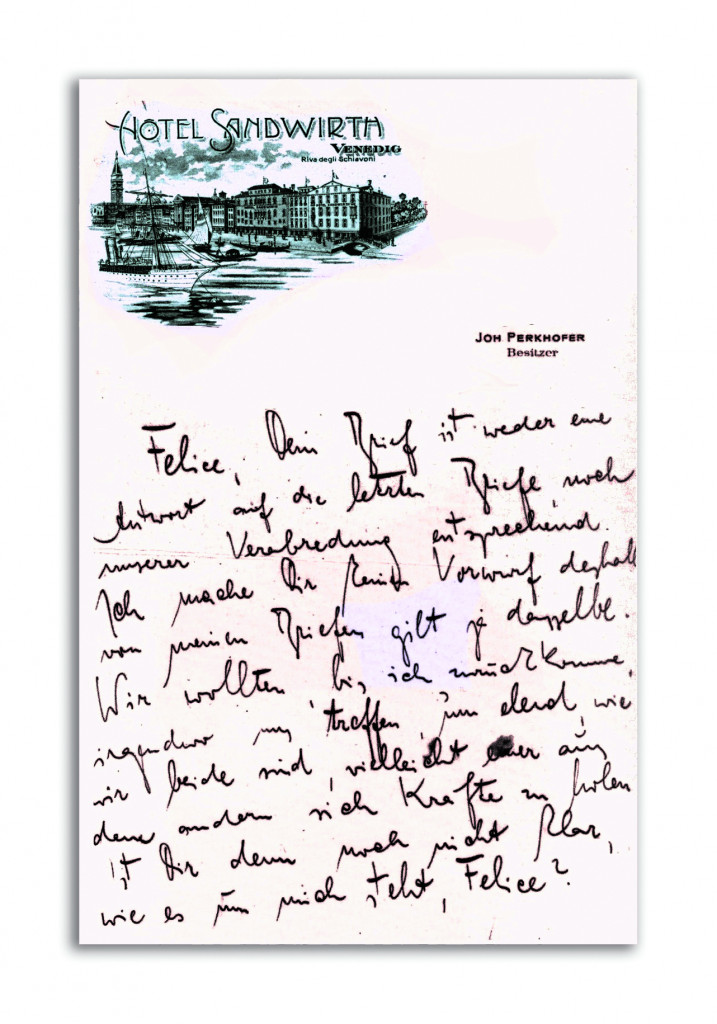 HOTEL SANDWIRTH
VENEDIG
Riva degli Schiavoni
JOH PERKHOFER
Besitzer
Felice, Dein Brief ist weder eine
Antwort auf die letzten Briefe noch
unserer Verabredung entsprechend.
Ich mache Dir keinen Vorwurf deshalb
von meinen Briefen gilt ja dasselbe.
Wir wollten bis ich zurückkomme,
irgendwo uns treffen um elend, wie
wir beide sind, vielleicht einer aus
dem andern sich Kräfte zu holen
Ist Dir denn noch nicht klar,
wie es um mich steht, Felice?